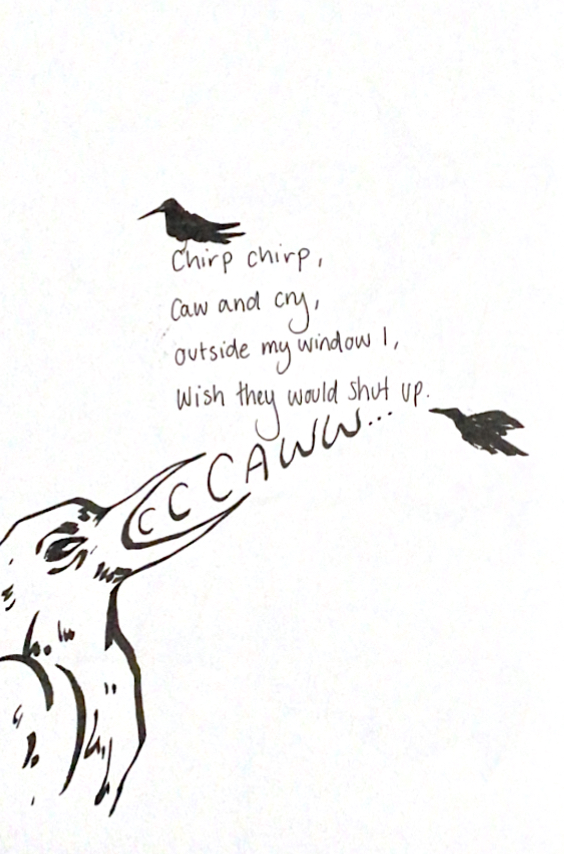 Chirp chirp,
Caw and cry,
outside my window I,
Wish they would shut up.
CCCAWW...